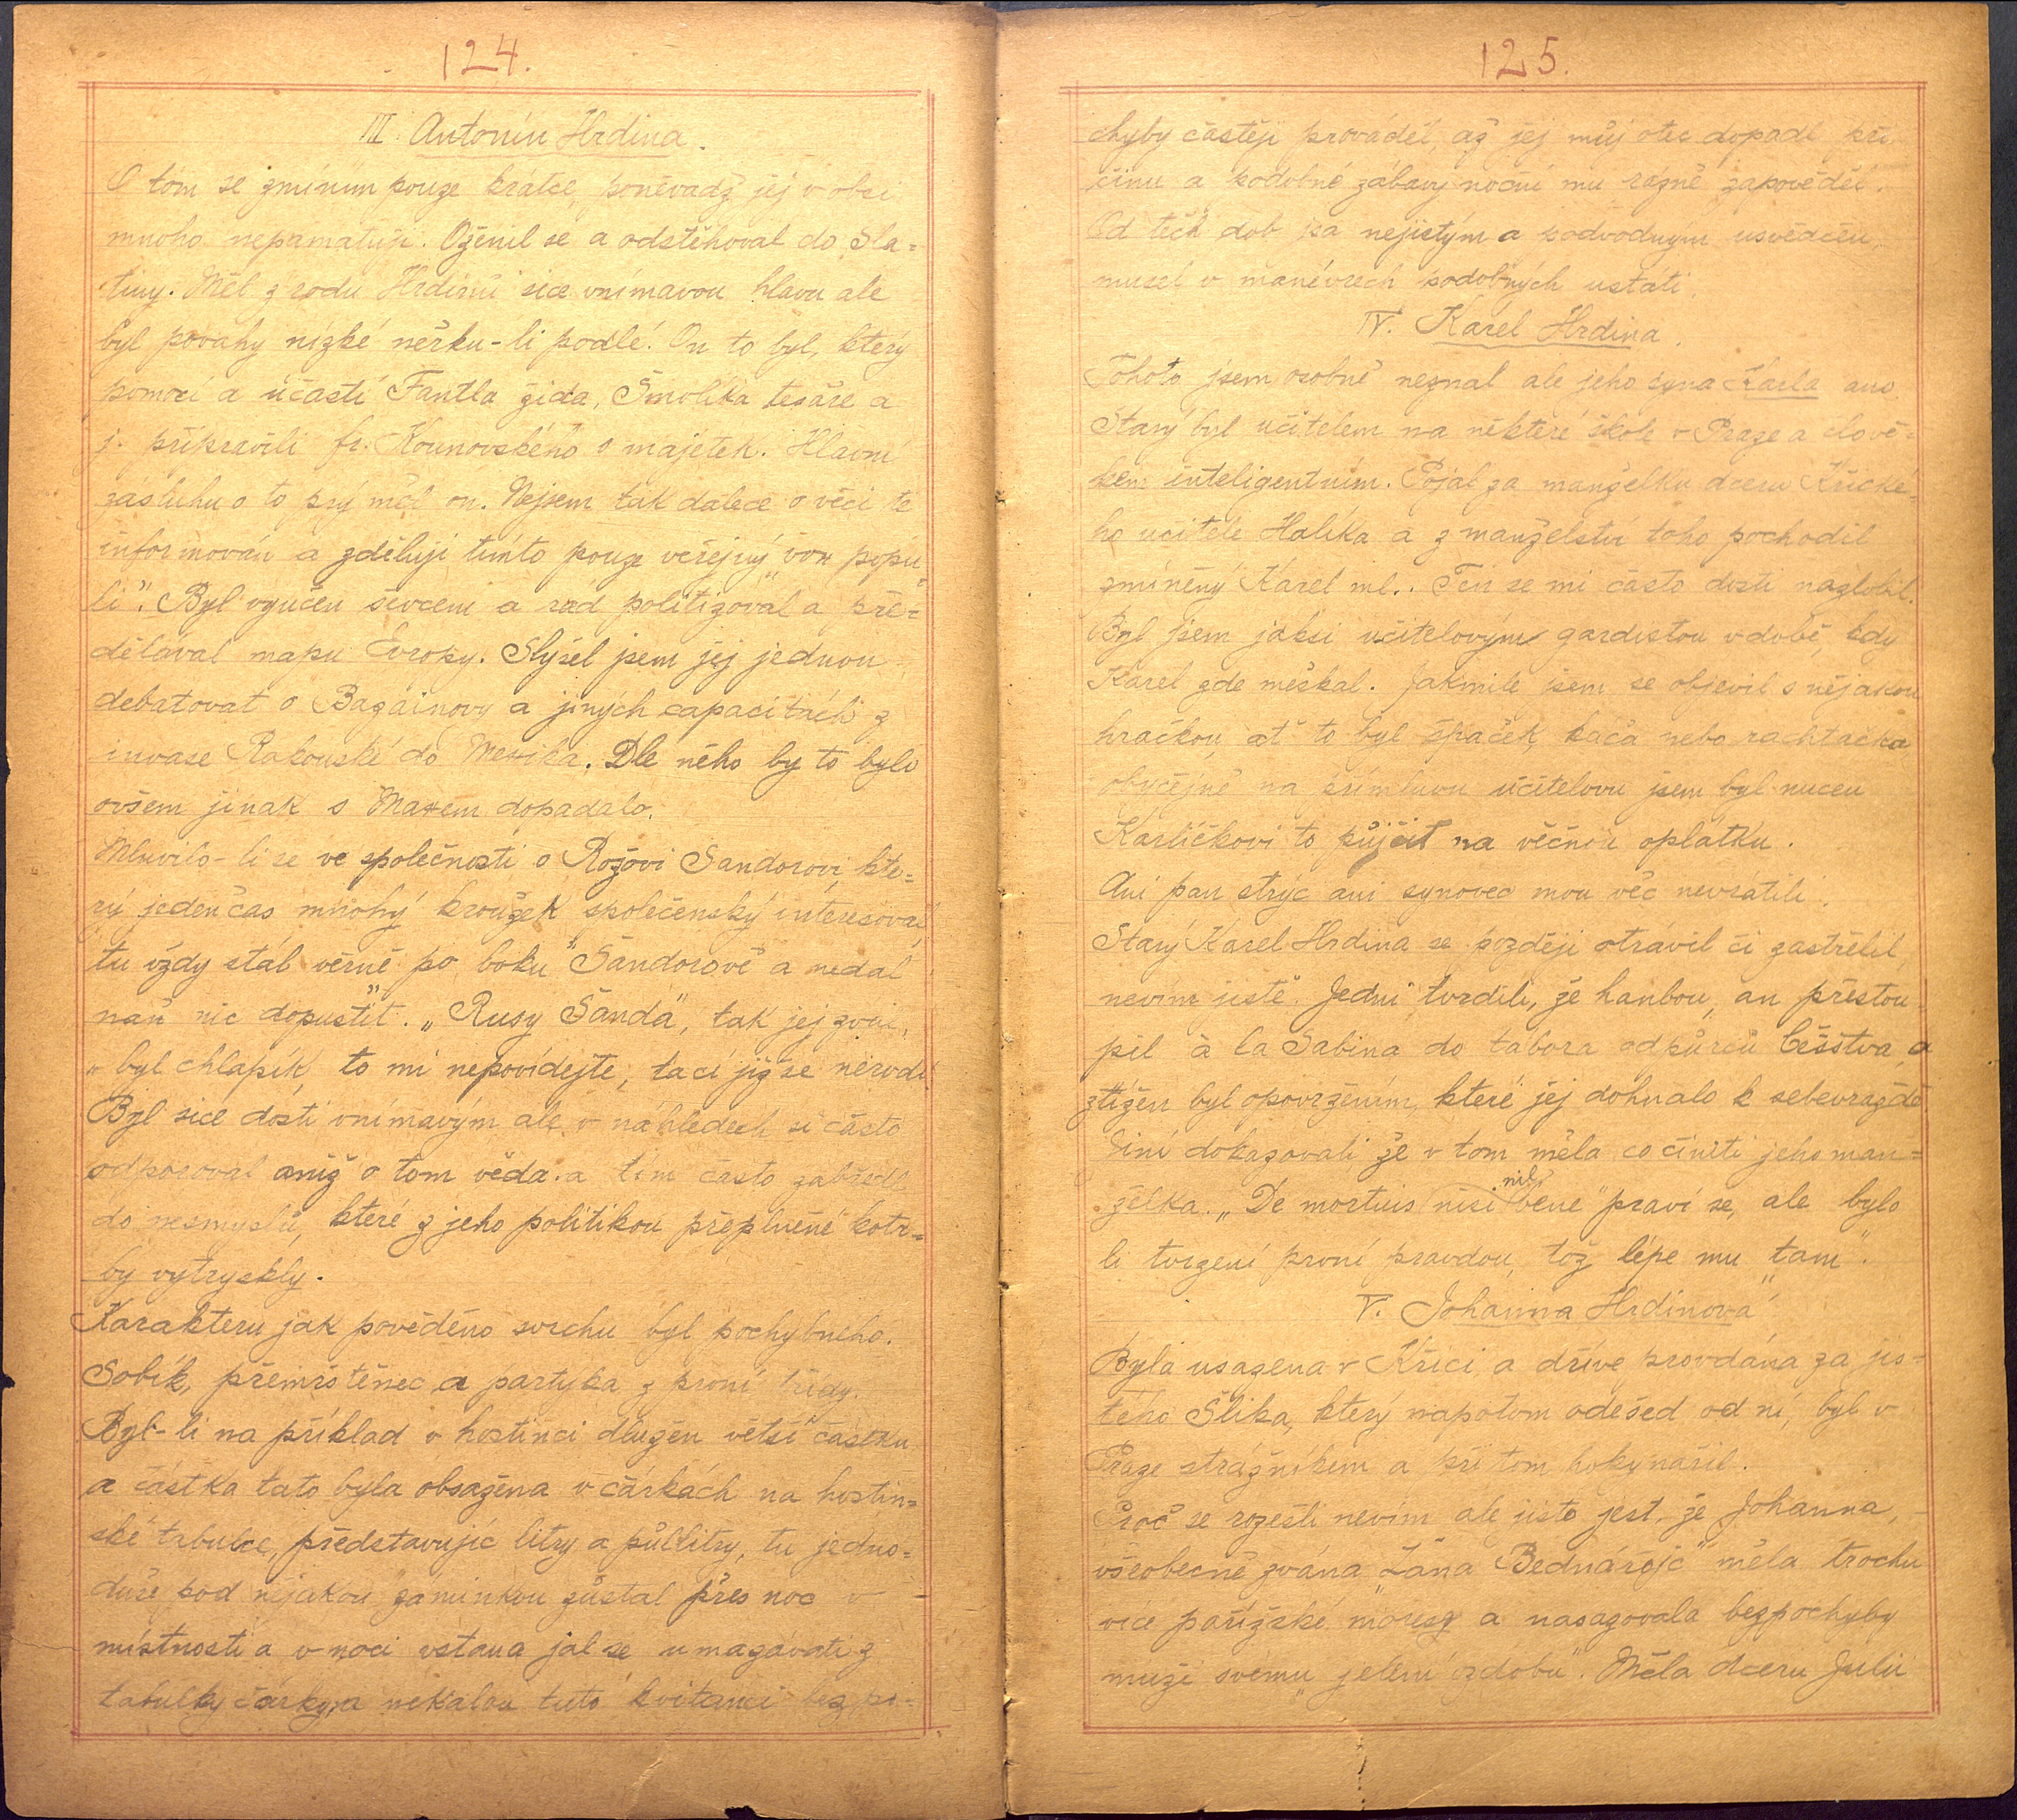 124.
III. Antonín Hrdina.
O tom se zmíním pouze krátce, poněvadž jej v obci
mnoho nepamatuji. Oženil se a odstěhoval do Sla=
tiny. Měl z rodu Hrdinů sice vnímavou hlavu ale
byl povahy nízké neřku-li podlé. On to byl, který
pomocí a účastí Fantla žida, Šmolíka tesaře a
j. připravili fr. Kounovského o majetek. Hlavní
zásluhu o to prý měl on. Nejsem tak dalece o věci té
informován a zděluji tímto pouze veřejný „vox popu=
li". Byl vyučen ševcem a rád politizoval a pře=
dělával mapu Evropy. Slyšel jsem jej jednou
debatovat o Bazainovy a jiných capacitách z
invase Rakouské do Mexika. Dle něho by to bylo
ovšem jinak s Maxem dopadalo.
Mluvilo-li se ve společnosti o Rožovi Šandorovi, kte=
rý jeden čas mnohý kroužek společenský interesoval
tu vždy stál věrně po boku Šandorově a nedal
naň nic dopustit. „Rusy Šanda", tak jej zval,
„byl chlapík, to mi nepovídejte, tací již se nerodí
Byl sice dosti vnímavým ale v náhledech si často
odporoval aniž o tom věda. a tím často zabředl
do nesmyslů, které z jeho politikou přeplněné kotr=
by vytryskly.
Karakteru jak pověděno svrchu byl pochybného.
Sobík, přemrštěnec a partyka z první třídy.
Byl-li na příklad v hostinci dlužen větší částku
a částka tato byla obsažena v čárkách na hostin=
ské tabulce, představujíc litry a půllitry, tu jedno=
duše pod nějakou záminkou zůstal přes noc v
místnosti a v noci vstana jal se umazávati z
tabulky čárky, a nekalou tuto kvitanci bez po=
125.
chyby častěji prováděl, až jej můj otec dopadl při
činu a podobné zábavy noční mu rázně zapověděl.
Od těch dob jsa nejistým a podvodným usvědčen,
musel v manévrech podobných ustati.
IV. Karel Hrdina.
Tohoto jsem osobně neznal ale jeho syna Karla ano.
Starý byl učitelem na některé škole v Praze a člově=
kem inteligentním. Pojal za manželku dceru Křické=
ho učitele Halíka a z manželství toho pochodil
zmíněný Karel ml.. Ten se mi často dosti nazlobil.
Byl jsem jaksi učitelovým gardistou v době, kdy
Karel zde meškal. Jakmile jsem se objevil s nějakou
hračkou, ať to byl špaček, káča nebo rachtačka
obyčejně na přímluvu učitelovu jsem byl nucen
Karlíčkovi to půjčit na věčnou oplátku.
Ani pan strýc ani synovec mou věc nevrátili.
Starý Karel Hrdina se později otrávil či zastřelil,
nevím jistě. Jedni tvrdili, že hanbou, an přestou=
pil à la Sabina do tábora odpůrců Češstva, a
ztížen byl opovržením, které jej dohnalo k sebevraždě
Jiní dokazovali že v tom měla co činiti jeho man=
želka. „De mortuis nisi nil bene" praví se, ale bylo
li tvrzení první pravdou, tož lépe mu „tam".
V. Johanna Hrdinová
Byla usazena v Křici, a dříve provdána za jis=
tého Šlika, který napotom odešed od ní, byl v
Praze strážníkem a při tom hokynařil.
Proč se rozešli nevím ale jisto jest, že Johanna,
všeobecně zvána „Žána Bednářojc" měla trochu
více pařížské moresy a nasazovala bezpochyby
muži svému „jelení ozdobu". Měla dceru Julii